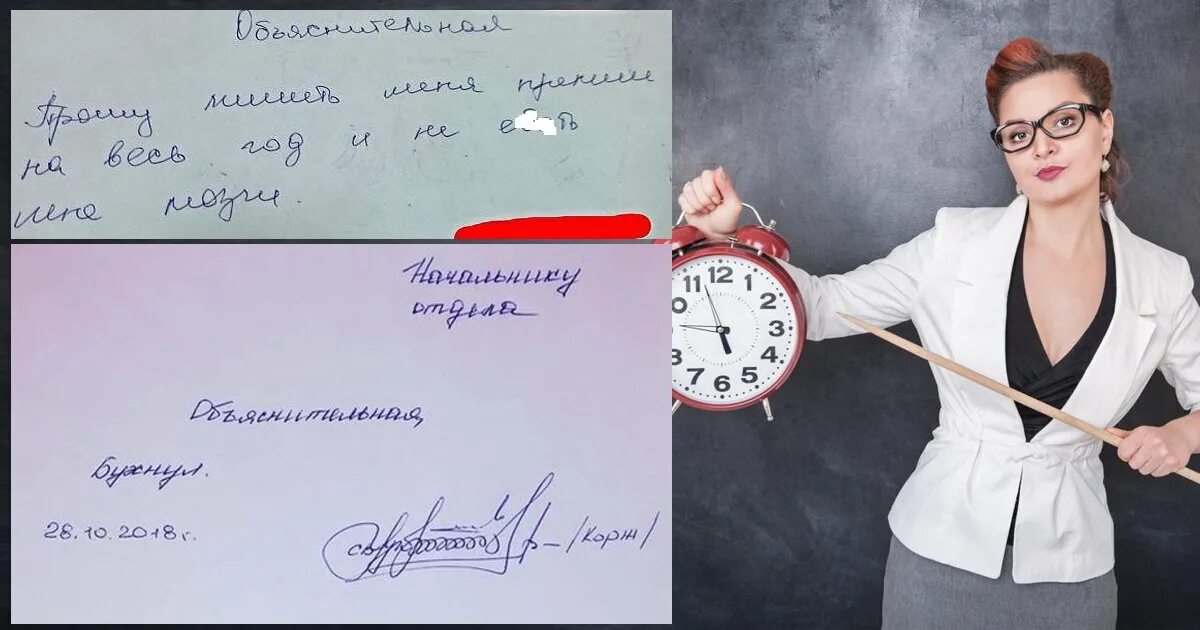 Объяснительная
Прошу лишить меня премии
на весь год и не е ть
мне мозги.
Начальнику
отдела
Объяснительная
Бухнул.
28.10.2018г.
/Корж/
11 12 1
2
3
4
5
6
7